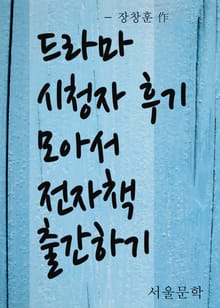 - 장창훈 作
드라마
시청자 후기
모아서
전자책
출간하기
서울문학